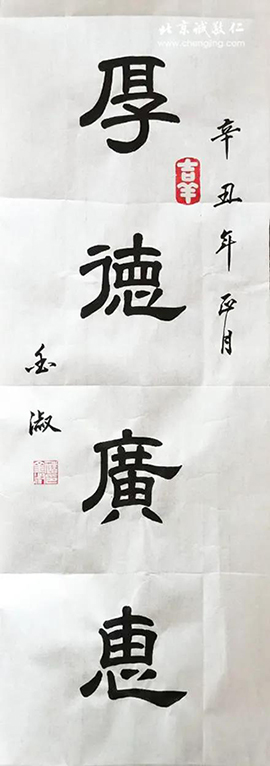 北京诚敬仁
www.chengjing.com
辛丑年正月
吉羊
厚德廣惠